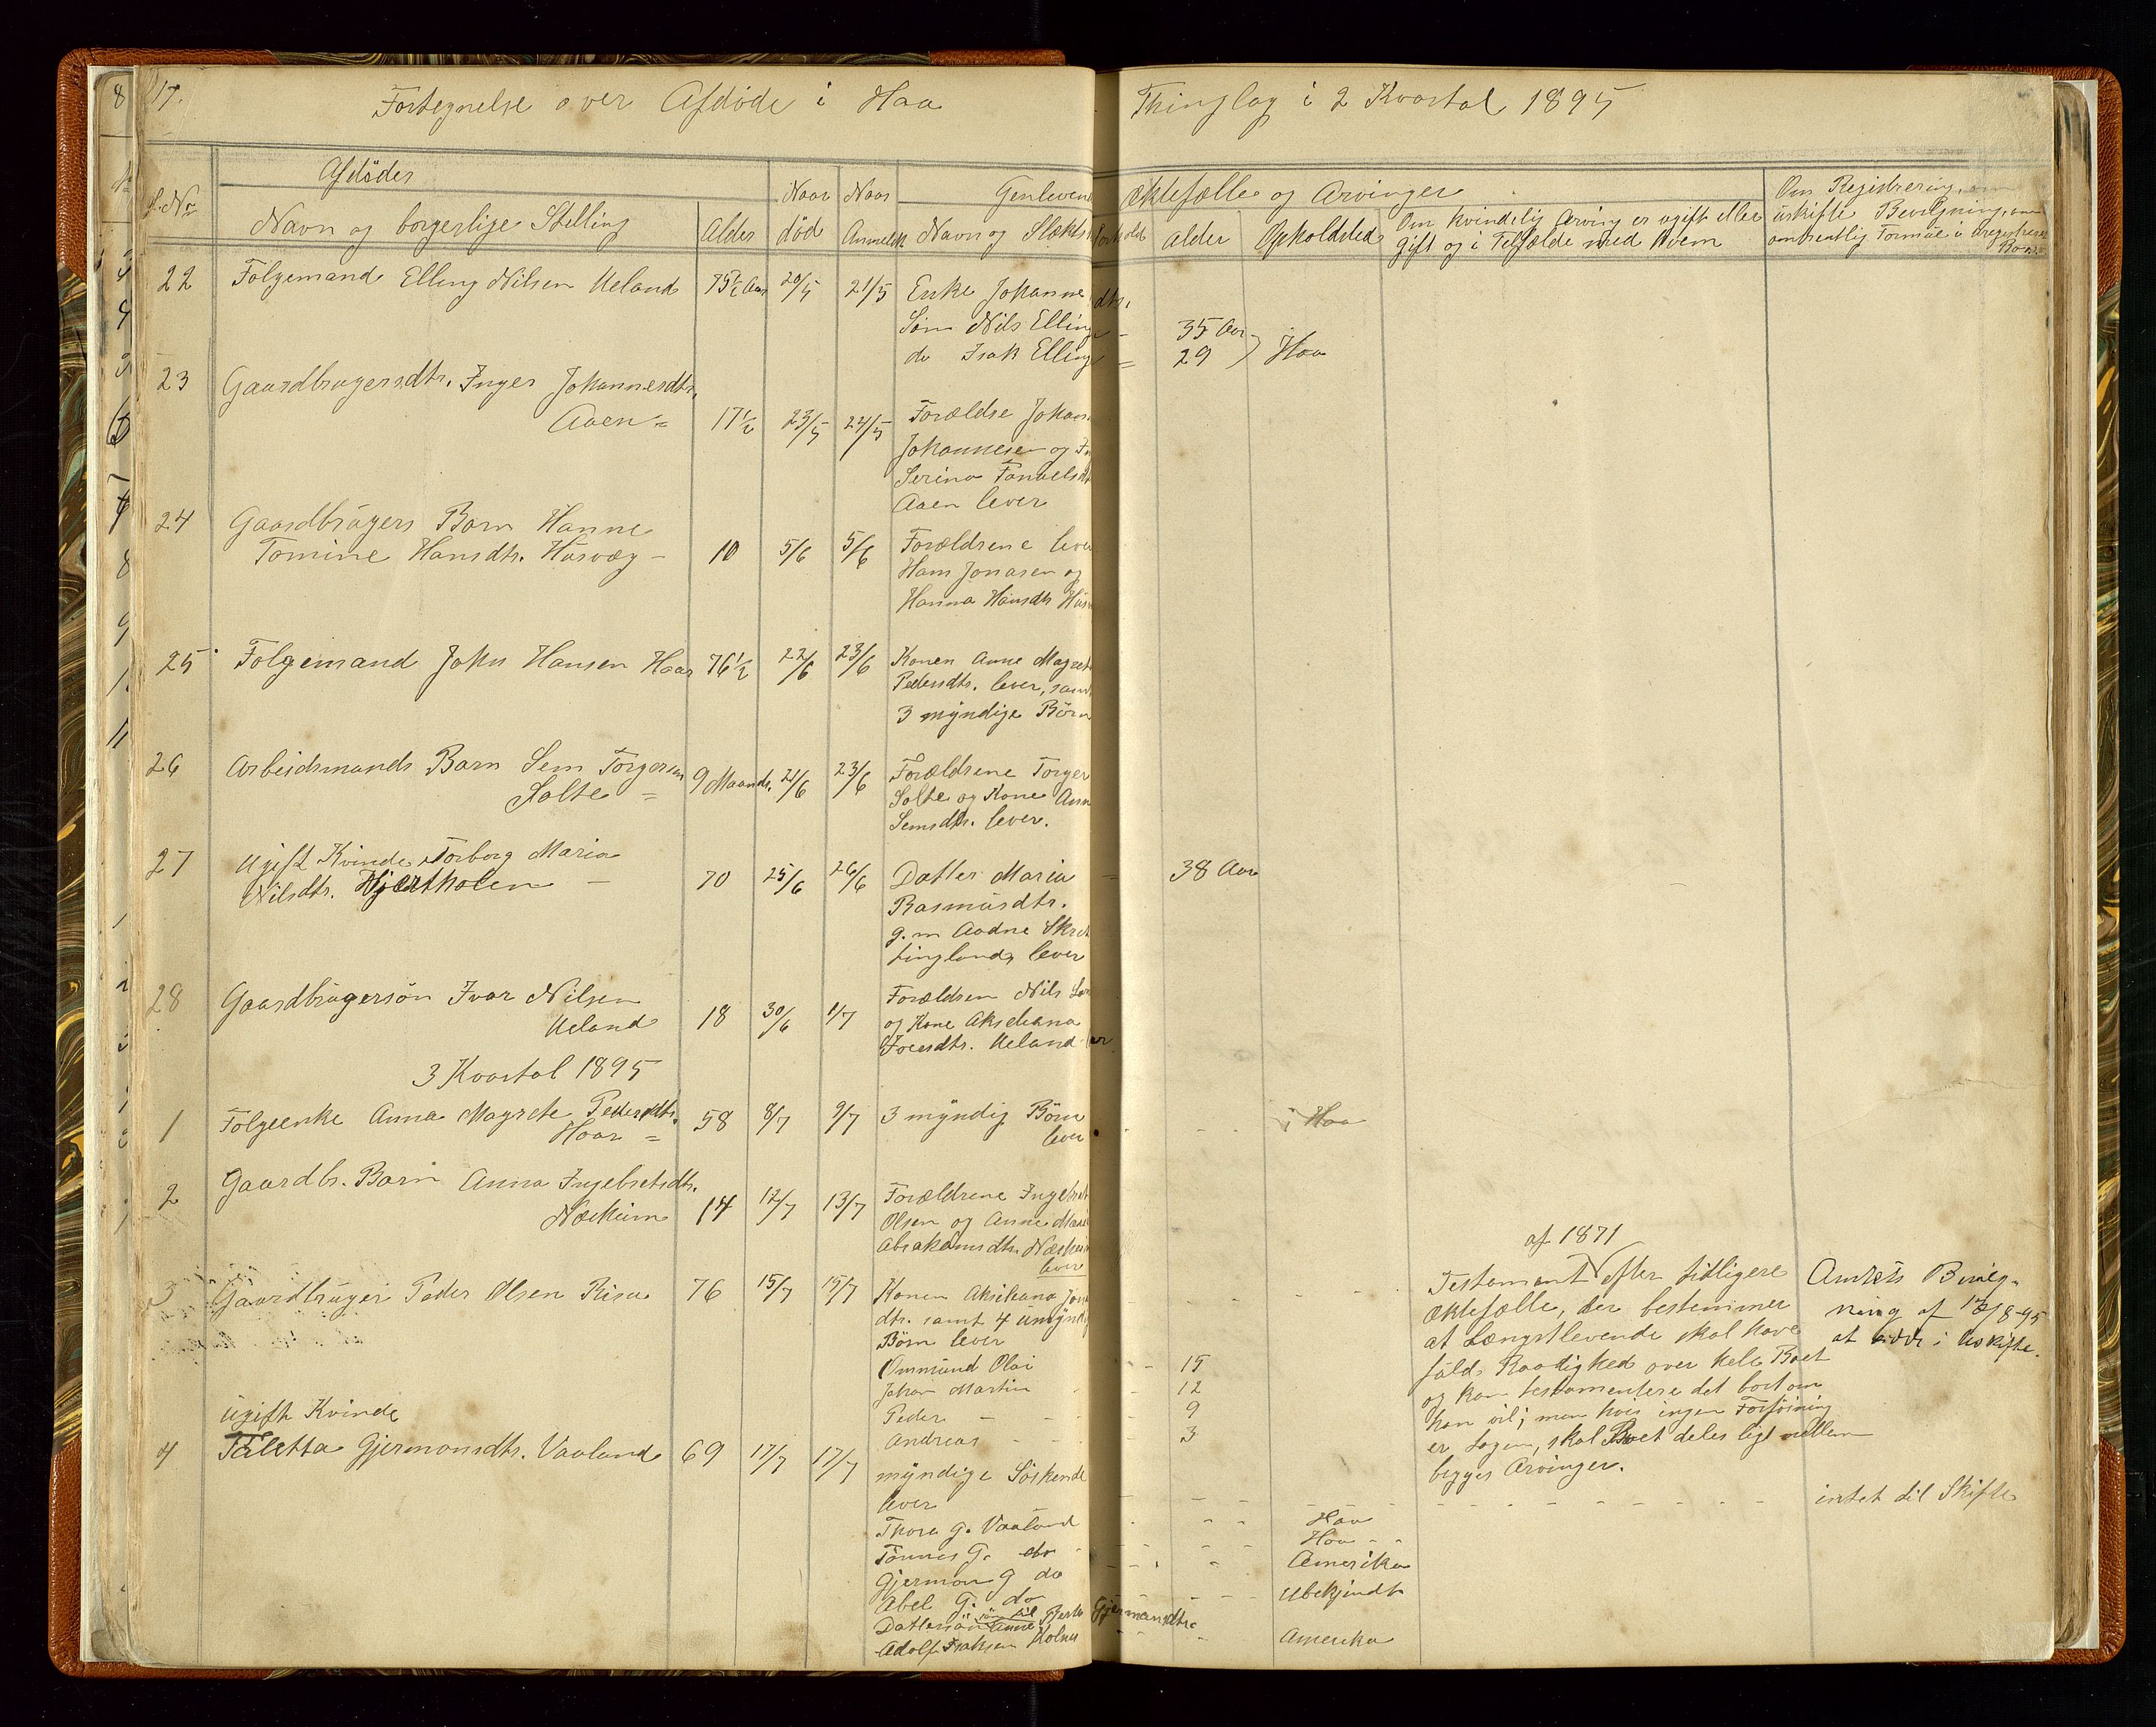 17. Fortegnelse over Afdøde i Haa Thinglag i 2 Kvartal 1895
L. No Afdødes Naar Naar Genlevende Ægtefælle og Arvinger Om Registrering, om
Navn og borgerlige Stilling Alder død Anmeldt Navn og Slægtsforhold Alder Opholdsted Om kvindelig Arving er ugift eller gift og i Tilfælde med hvem uskifte Bevilgning, om omtrentlig Formue i uregistreret Boer
22 Følgemand Elling Nilsen Ueland 75½ Aar 20/5 21/5 Enke Johanne dtr.
Søn Nils Elling - 35 Aar
do Isak Elling = 29 Haa
23 Gaardbrugersdtr. Inger Johannesdtr.
Aaen = 17½ 23/5 24/5 Forældre Johan
Johannesen og
Serina Tanuelsdt
Aaen lever
24 Gaardbrugers Barn Hanne
Tomine Hansdtr. Husvæg - 10 5/6 5/6 Forældrene leve
Hans Jonasen og
Hanna Hansdtr Hus
25 Følgemand John Hansen Haar 76½ 22/6 23/6 Konen Anne Magret
Pedersdtr. lever, samt
3 myndige Børn
26 Arbeidsmands Barn Sem Torgersen
Salte = 9 Maaneds. 21/6 23/6 Forældrene Torger
Salte og Kone Ann
Semsdtr. lever.
27 Ugift Kvinde Torborg Maria
Nilsdtr. Njærtholen - 70 25/6 26/6 Datter Maria - 38 Aar
Rasmusdtr.
g. m Aadne Skret
tingland, lever
28 Gaardbrugersøn Ivar Nilsen
Ueland 18 30/6 1/7 Forældren Nils
og Kone Akseliana
Iversdtr. Ueland
3 Kvartal 1895
1 Følgeenke Anna Magrete Pedersdtr.
Haar = 58 8/7 9/7 3 myndig Børn
lever i Haa
2 Gaardbr. Barn Anna Ingebretsdtr.
Nærheim 14 12/7 13/7 Forældrene Ingebret
Olsen og Anne Mari
Abrahamsdtr. Nærheim
lever
3 Gaardbruger Peder Olsen Risa 76 15/7 15/7 Konen Akseliana
dtr. samt 4 umyndig
Børn lever
Ommund Olai - 15
Johan Martin - 12
Peder - 9
Andreas - 3
af 1871
Testament efter tidligere
Ægtefælle, der bestemmer
at Længstlevende skal have
fuld Raadighed over hele Boet
og kan testamentere det bort om
han vil; men hvis ingen Forføining
er tagen, skal Boet deles ligt mellem
begges Arvinger.
Amtets Bevilg-
ning af 17/8-95
at sidde i Uskifte.
ugift Kvinde
4 Taletta Gjermonsdtr. Vaaland 69 17/7 17/7 myndige Søskende
lever intet til Skifte
Thore G. Vaaland Haa
Tønnes G. do Haa
Gjermon G do Amerika
Abel G. do Ubekjendt
Dattersøn søn til Gjermansdtr.
Adolf Isaksen Amerika